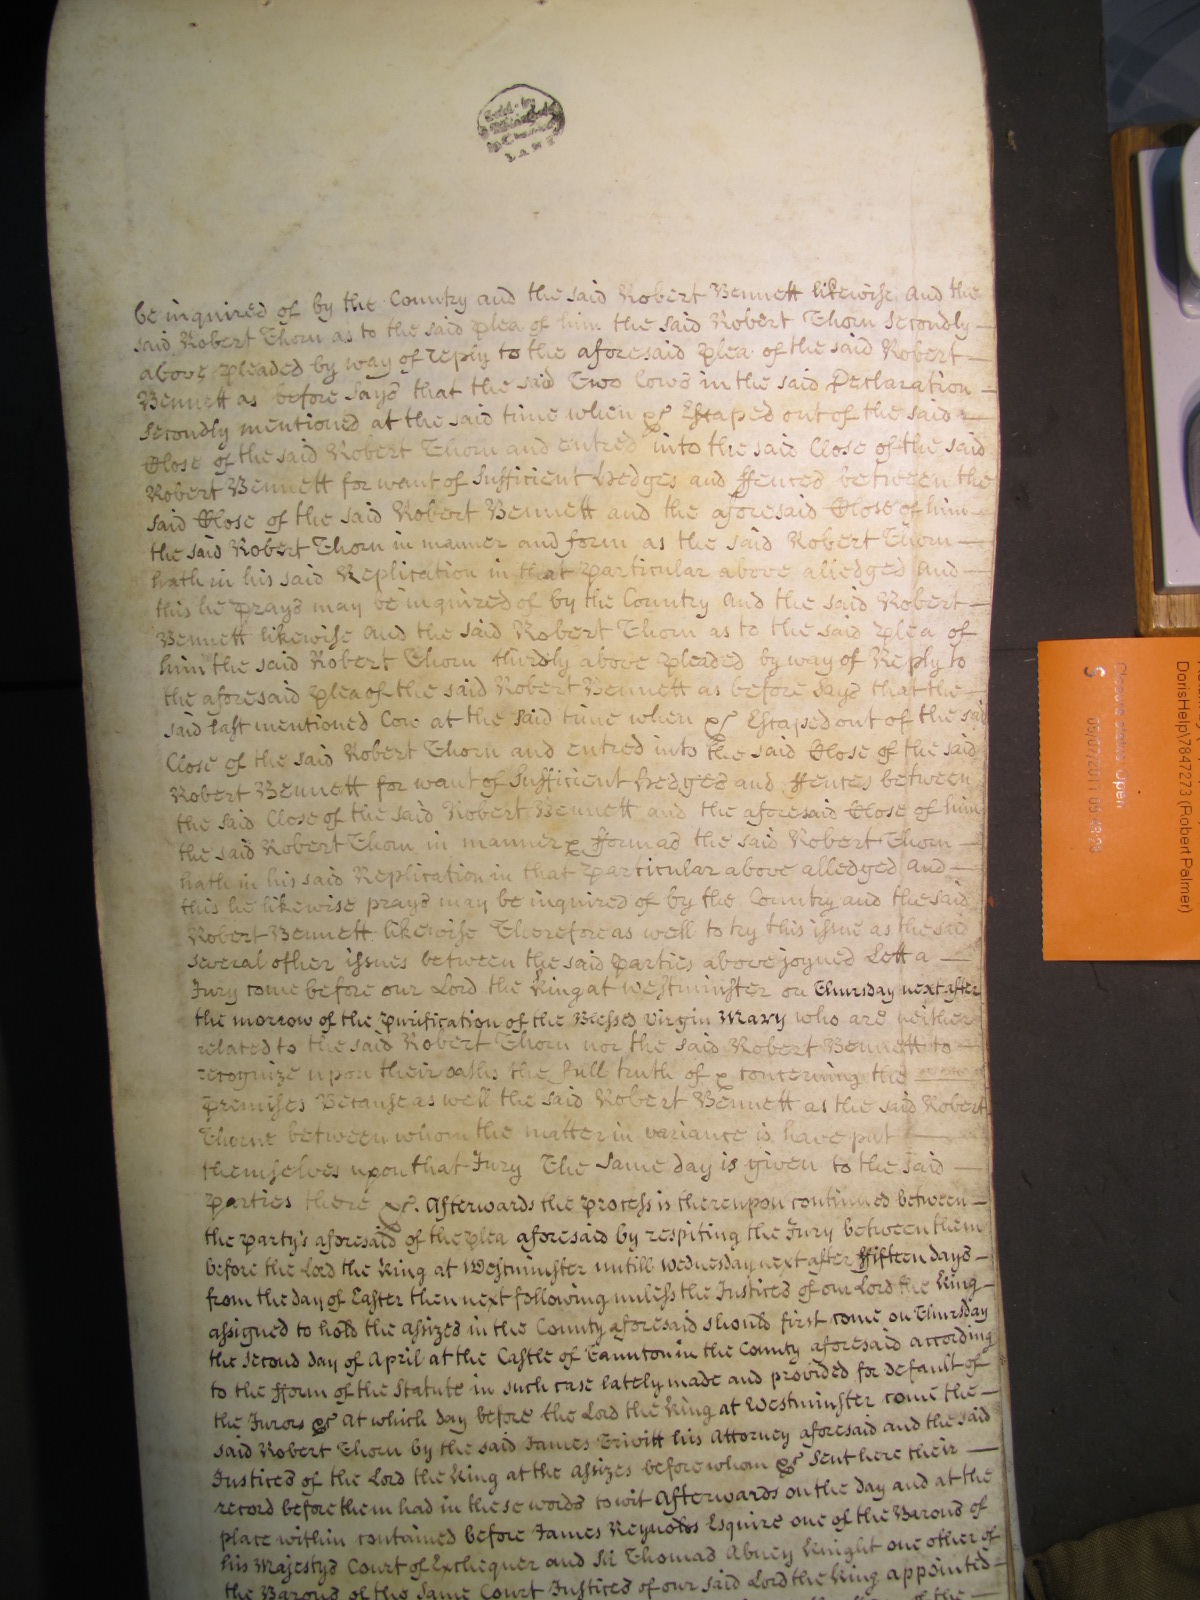 be inquired of by the Country and the said Robert Bennett likewise And the
said Robert Thorn as to the said plea of him the said Robert Thorn Secondly
above pleaded by way of reply to the aforesaid plea of the said Robert
Bennett as before Says that the said Two Cows in the said Declaration
Secondly mentioned at the said time when &c Escaped out of the said
Close of the said Robert Thorn and entred into the said Close of the said
Robert Bennett for want of Sufficient Hedges and ffences between the
said Close of the said Robert Bennett and the aforesaid Close of him
the said Robert Thorn in manner and form as the said Robert Thorn
hath in his said Replication in that particular above alledged And
this he prays may be inquired of by the Country And the said Robert
Bennett likewise And the said Robert Thorn as to the said plea of
him the said Robert Thorn thirdly above pleaded by way of Reply to
the aforesaid plea of the said Robert Bennett as before Says that the
said last mentioned Cow at the said time when &c Escaped out of the said
Close of the said Robert Thorn and entred into the said Close of the said
Robert Bennett for want of Sufficient Hedges and ffences between
the said Close of the said Robert Bennett and the aforesaid Close of him
the said Robert Thorn in manner & fform as the said Robert Thorn
hath in his said Replication in that particular above alledged and
this he likewise prays may be inquired of by the Country and the said
Robert Bennett likewise Therefore as well to try this issue as the said
several other issues between the said parties above joyned Lett a
Jury come before our Lord the King at Westminster on Thursday next after
the morrow of the purification of the Blessed Virgin Mary who are neither
related to the said Robert Thorn nor the said Robert Bennett to
recognize upon their oaths the full truth of & concerning the
premises Because as well the said Robert Bennett as the said Robert
Thorne between whom the matter in variance is have put
themselves upon that Jury The Same day is given to the said
parties there &c. Afterwards the process is thereupon continued between
the party's aforesaid of the plea aforesaid by respiting the Jury between them
before the Lord the King at Westminster untill Wednesday next after ffifteen days
from the day of Easter then next following unless the Justices of our Lord the King
assigned to hold the Assizes in the County aforesaid should first come on Thursday
the Second day of April at the Castle of Taunton in the County aforesaid according
to the fform of the Statute in such case lately made and provided for default of
the Jurors &c At which day before the Lord the King at Westminster come the
said Robert Thorn by the said James Trivitt his Attorney aforesaid and the said
Justices of the Lord the King at the Assizes before whom &c Sent here their
record before them had in these words to wit Afterwards on the day and at the
place within contained before James Reynolds Esquire one of the Barons of
his Majestys Court of Exchequer and Sir Thomas Abney Knight one other of
the Barons of the Same Court Justices of our said Lord the King appointed
DorisHelp\7847273 (Robert Palmer)
05/07/2011